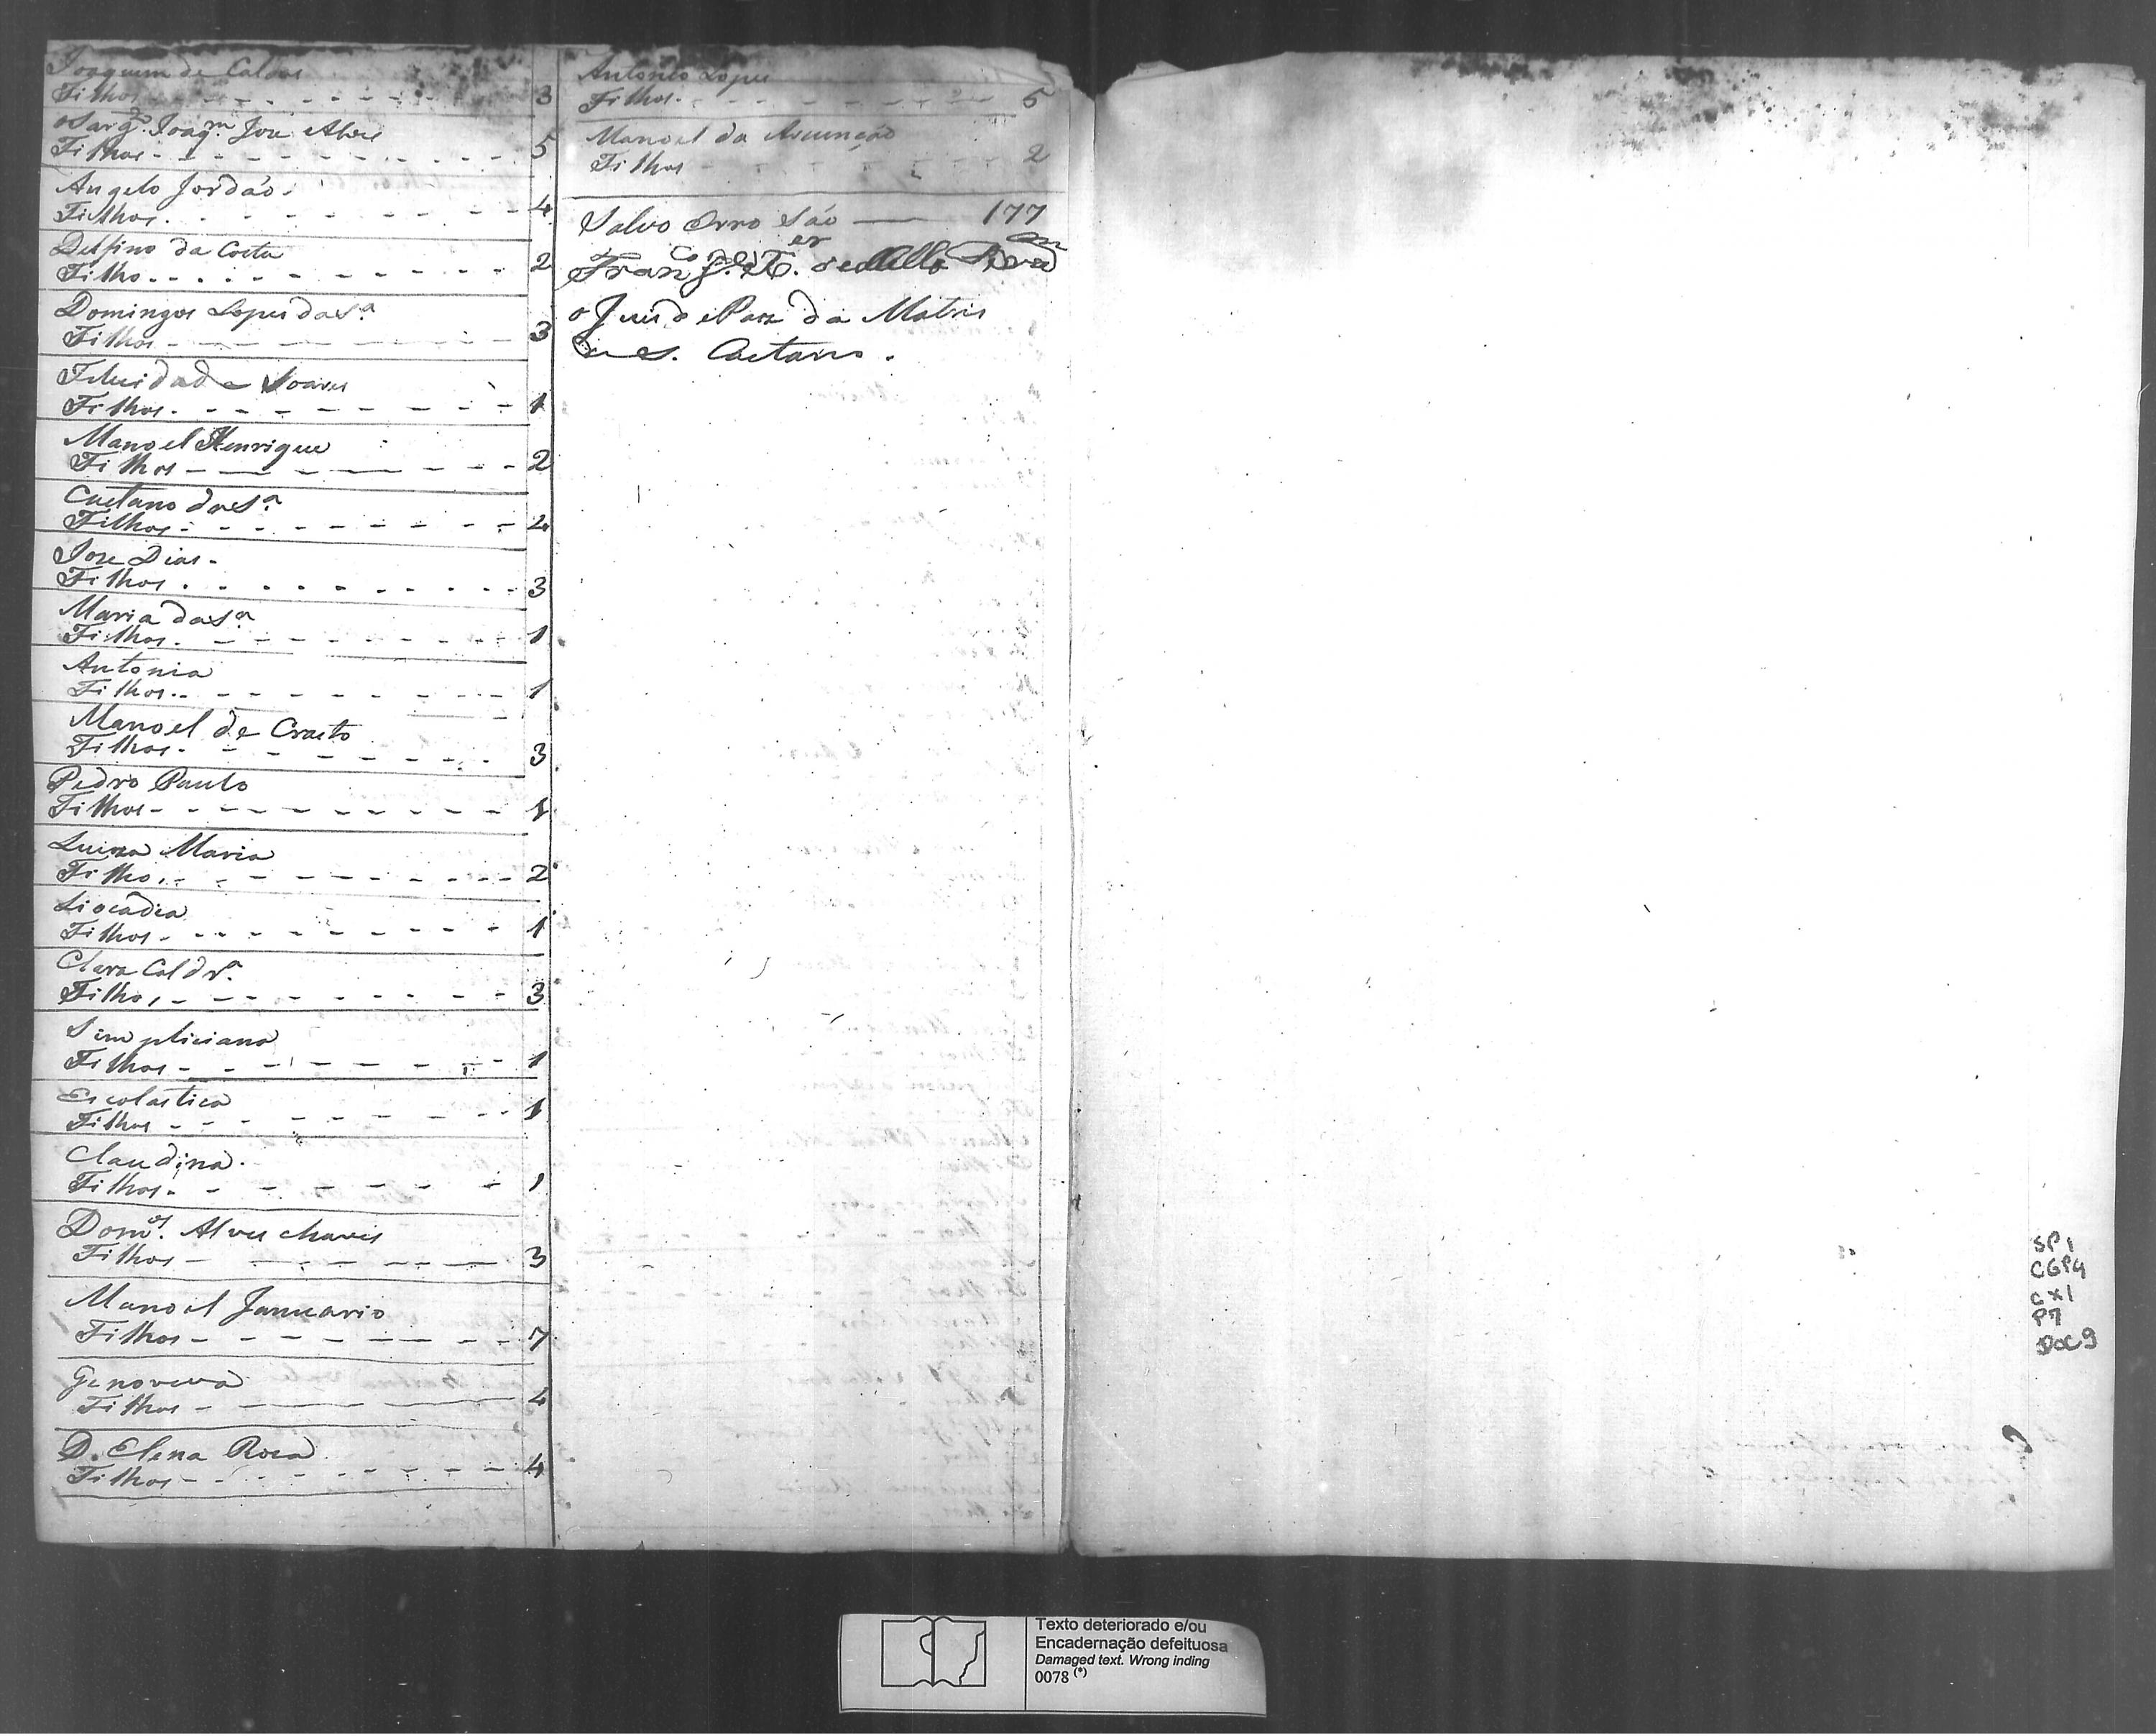 Joaquim de Caldas
Filhos - - - - - - 3
o Sarg.to Joaq.m Joze Alves
Filhos - - - - - - 5
Angelo Jordão.
Filhos. - - - - - - 4
Delfino da Costa
Filho - - - - - - 2
Domingos Lopes da S.a
Filhos - - - - - - 3
Felicidade Soares
Filhos. - - - - - - 1
Manoel Henrique
Filhos - - - - - - 2
Caetano da S.a
Filhos - - - - - - 2
Joze Dias.
Filhos . - - - - - - 3
Maria da S.a
Filhos. - - - - - - 1
Antonia
Filhos. - - - - - - 1
Manoel de Crasto
Filhos. - - - - - - 3
Pedro Paulo
Filhos - - - - - - 1
Luiza Maria
Filhos - - - - - - 2
Liocadia
Filhos - - - - - - 1
Clara Caldr.a
Filhos - - - - - - 3
Simpliciana
Filhos - - - - - - 1
Escolastica
Filhos - - - - - - 1
Claudina.
Filhos. - - - - - - 1
Dom.os Alves chaves
Filhos - - - - - - 3
Manoel Januario
Filhos - - - - - - 7
Genoveva
Filhos - - - - - - 4
D. Elena Roza
Filhos - - - - - - 4
Antonio Lopes
Filhos. - - - - - - 5
Manoel da Asumção
Filhos - - - - - - 2
Salvo Erro São — 177
Fran.co
o Juis de Paz da Matris
de S. Caetano.
SP1
CGP4
cx1
P7
DOC9
Texto deteriorado e/ou
Encadernação defeituosa
Damaged text. Wrong inding
0078 (*)